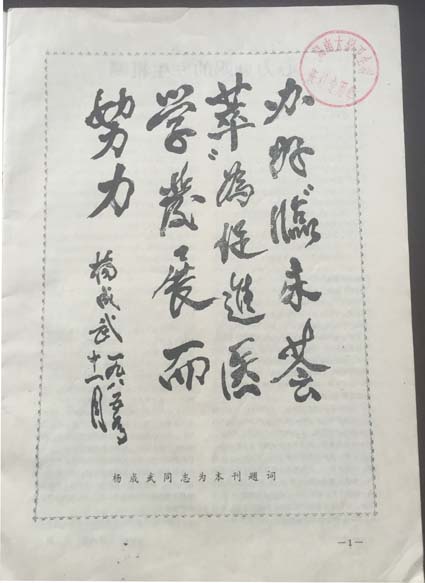 办好“臨床荟
萃”為促進医
学發展而
努力
楊成武
一九八五年
十一月
杨成武同志为本刊题词
—1—